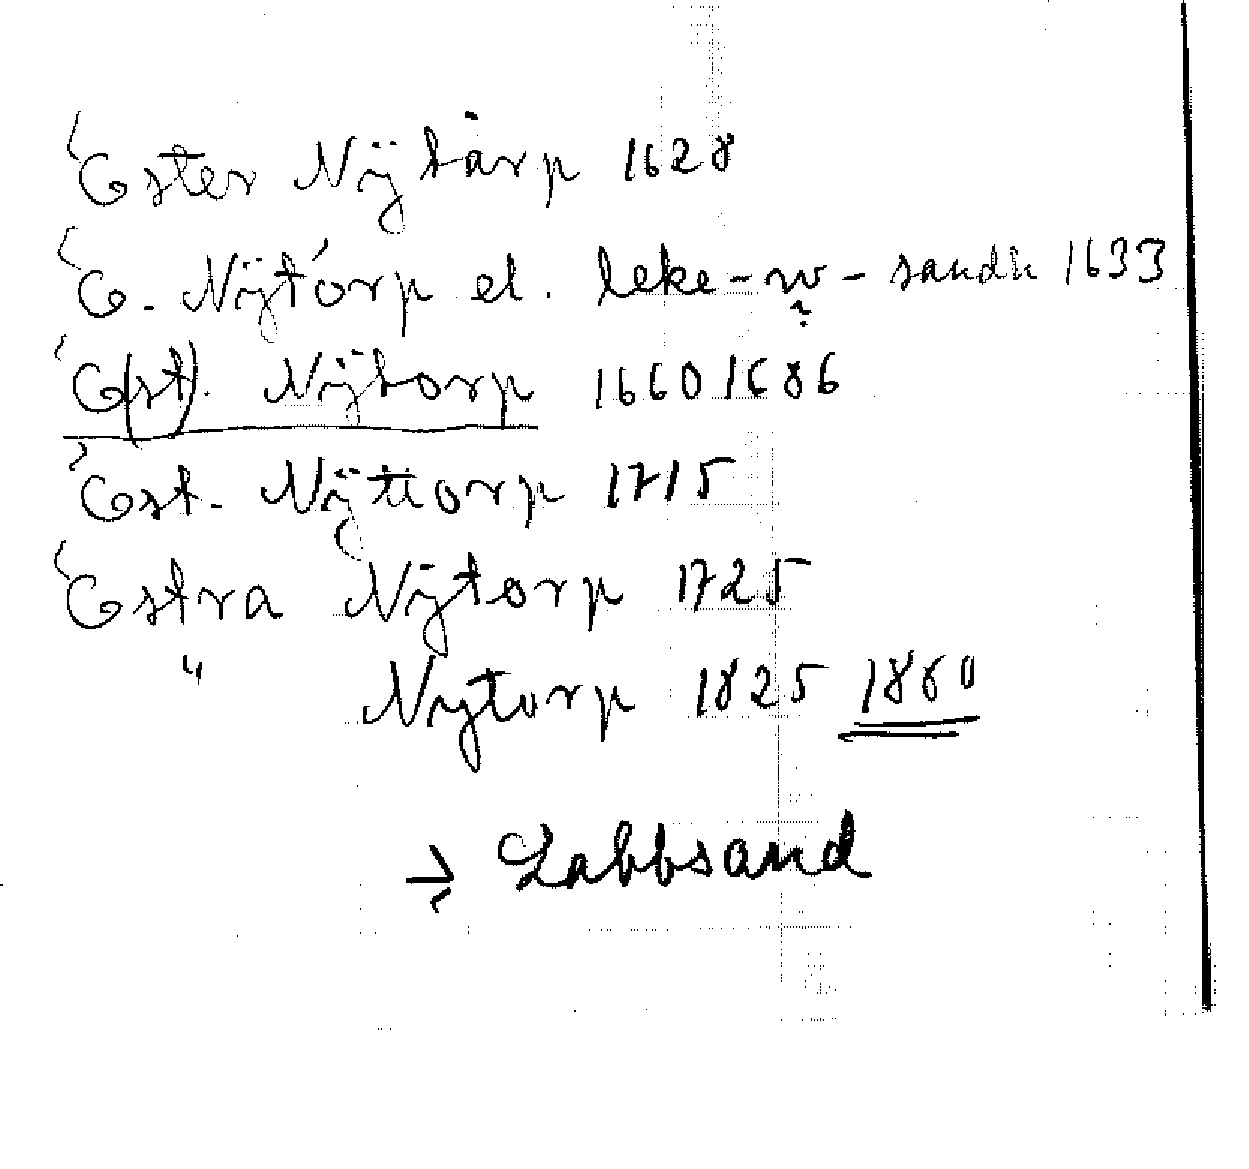 Ester Nÿtårp 1628
E. Nÿtórp el. leke-w-sandh 1633
E(st). Nÿtorp 1660 1686
Est. Nÿttorp 1715
Estra Nÿtorp 1725
" Nytorp 1825 1860
→ Labbsand